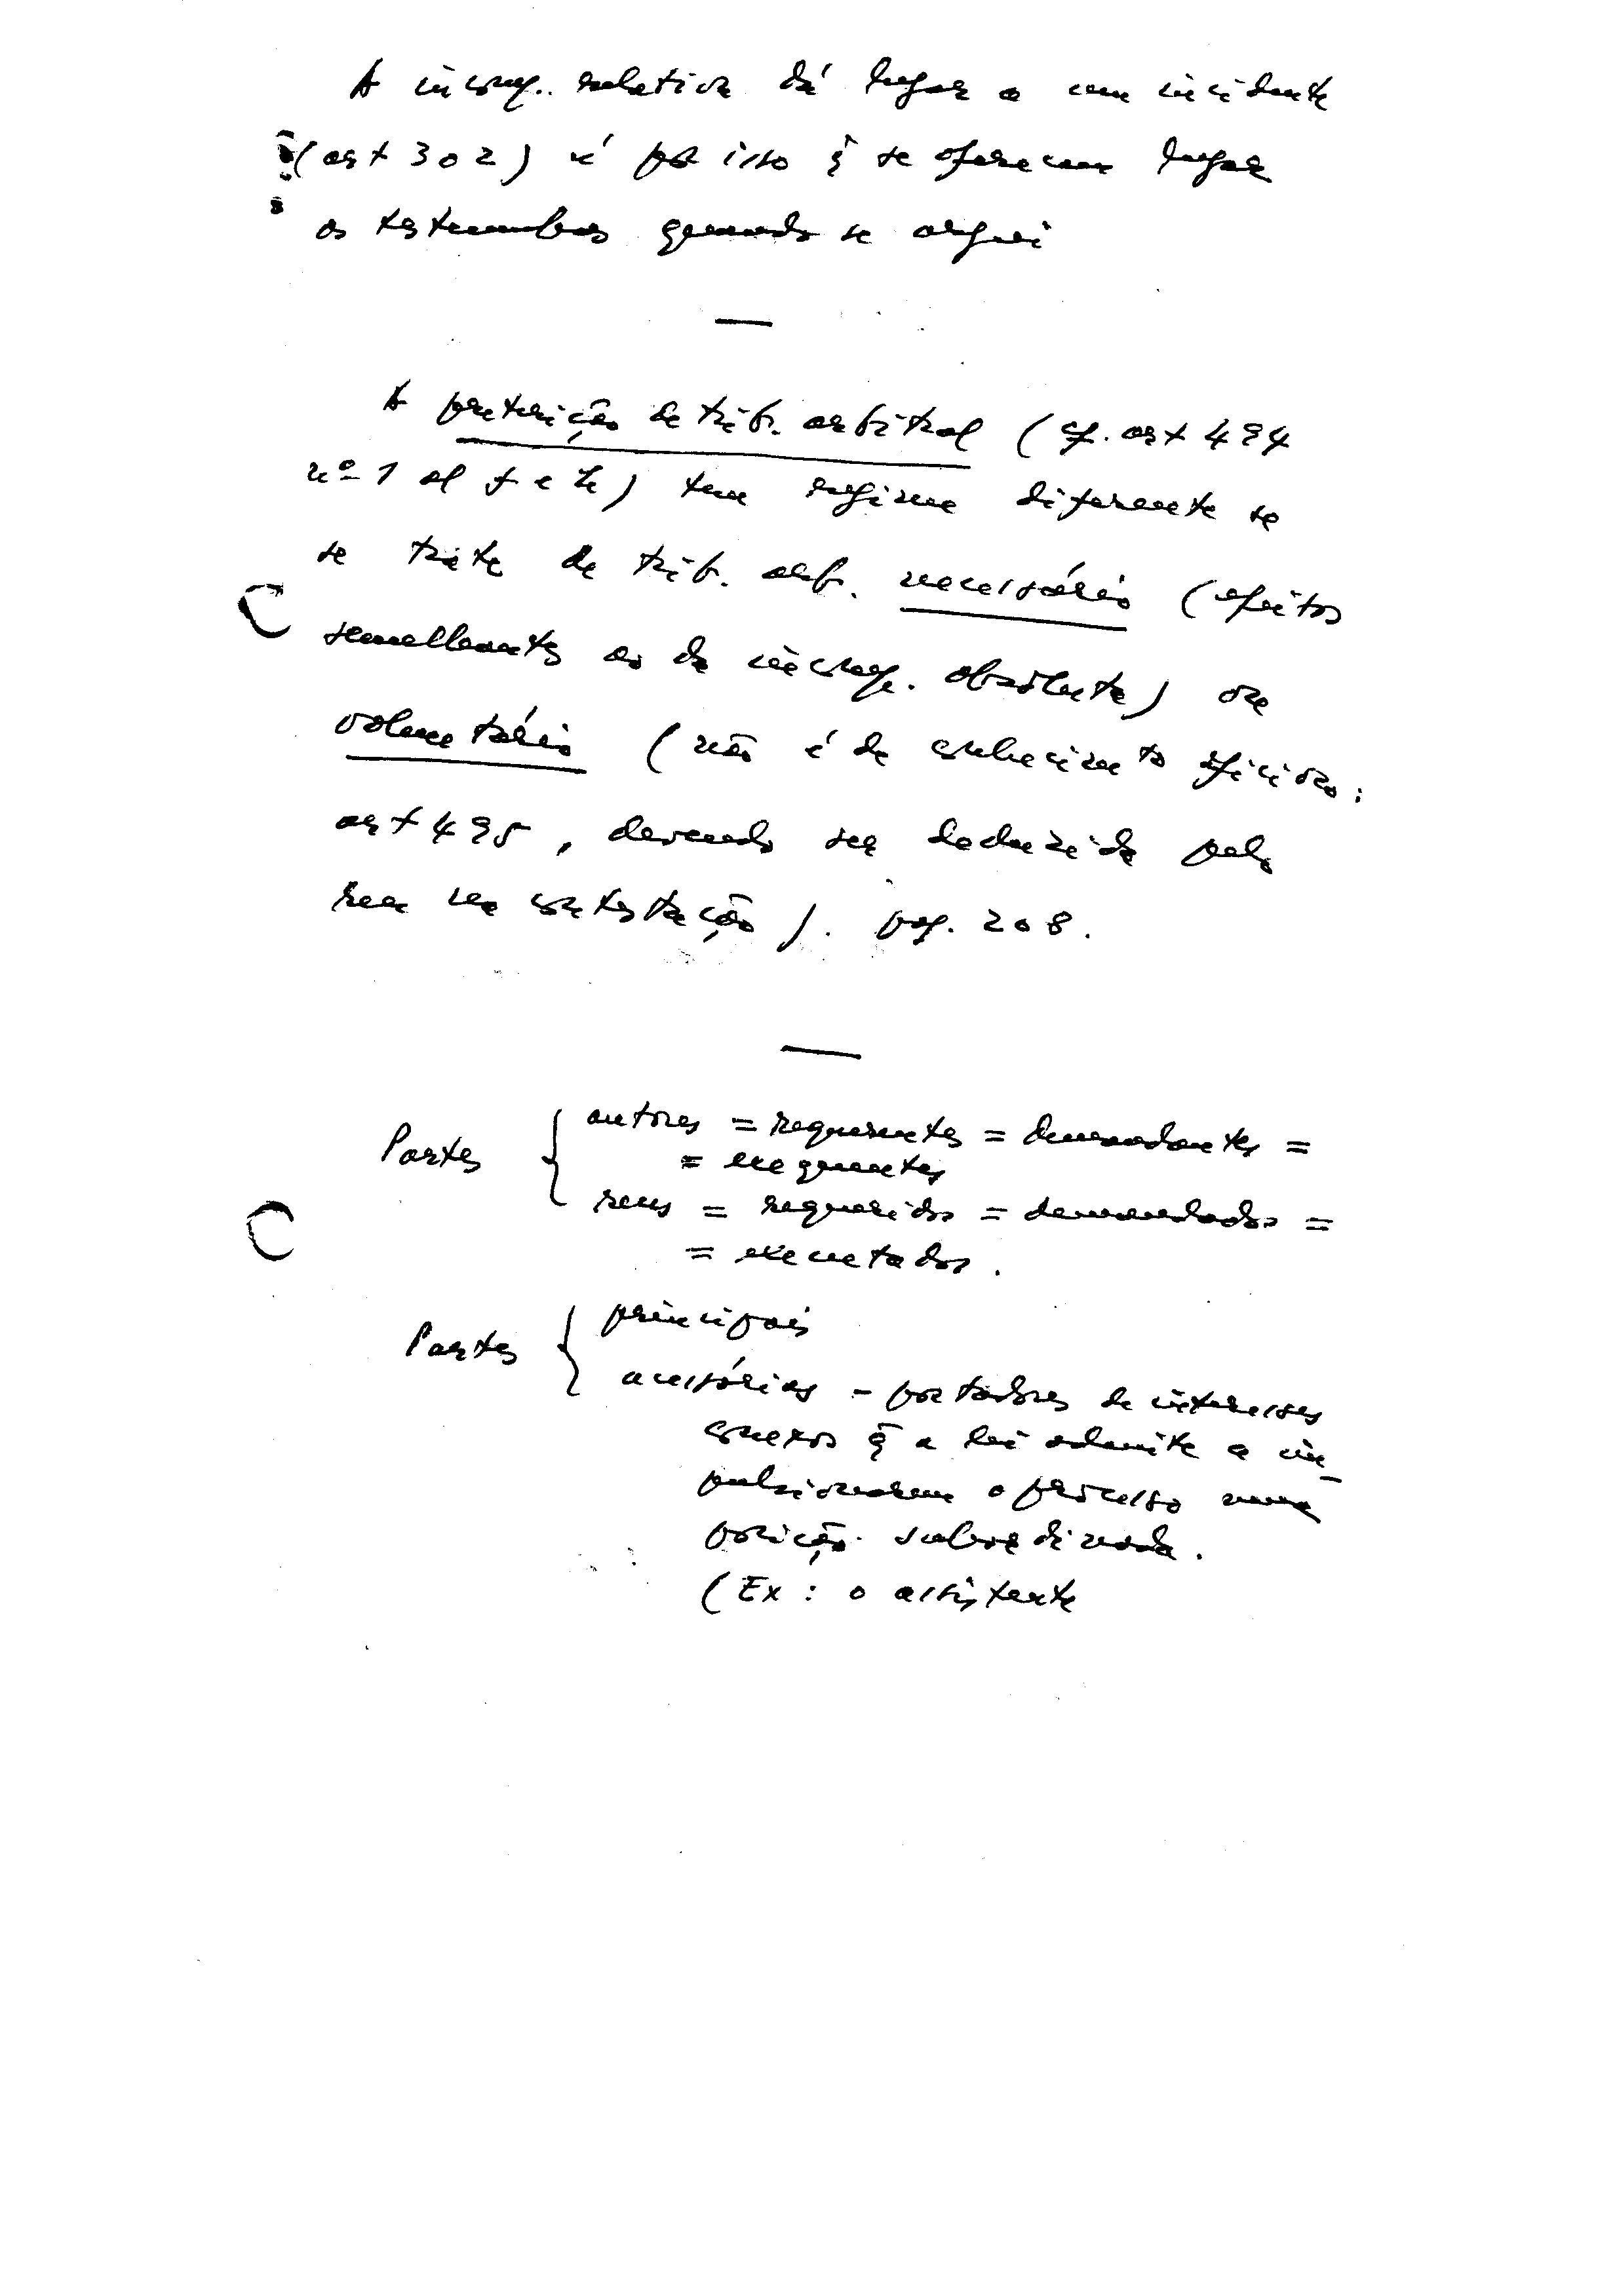 A incomp. relativa dá lugar a um incidente
(art 302) é por isso q̃ se oferecem logo
as testemunhas quando se argui
A preterição de trib. arbitral (cf. art 494
nº 1 al f e h) tem regime diferente se
se trate de trib. arb. necessário (efeitos
semelhantes ao da incomp. absoluta) ou
voluntário (não é de conhecimento oficioso:
art 495, devendo ser deduzida pelo
reu na contestação). pag. 208.
Partes { autores = requerentes = demandantes =
= exequentes
reus = requeridos = demandados =
= executados.
Partes { principais
acessórias - portadores de interesses
conexos q̃ a lei admite a im-
pulsionarem o processo numa
posição subordinada.
(Ex: o assistente